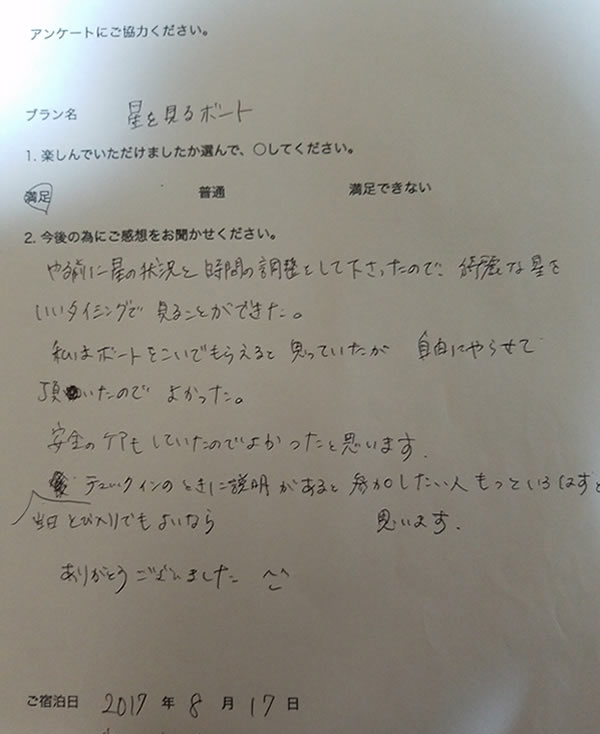 アンケートにご協力ください。
プラン名 星を見るボート
1. 楽しんでいただけましたか選んで、○してください。
満足 普通 満足できない
2. 今後の為にご感想をお聞かせください。
やる前に星の状況と時間の調整をして下さったので、綺麗な星を
いいタイミングで見ることができた。
私はボートをこいでもらえると思っていたが 自由にやらせて
頂いたので よかった。
安全のケアもしていたのでよかったと思います.
チェックインのときに説明があると参加したい人もっといるはずと
当日とび入りでもよいなら 思います.
ありがとうございました ^^
ご宿泊日 2017 年 8 月 17 日